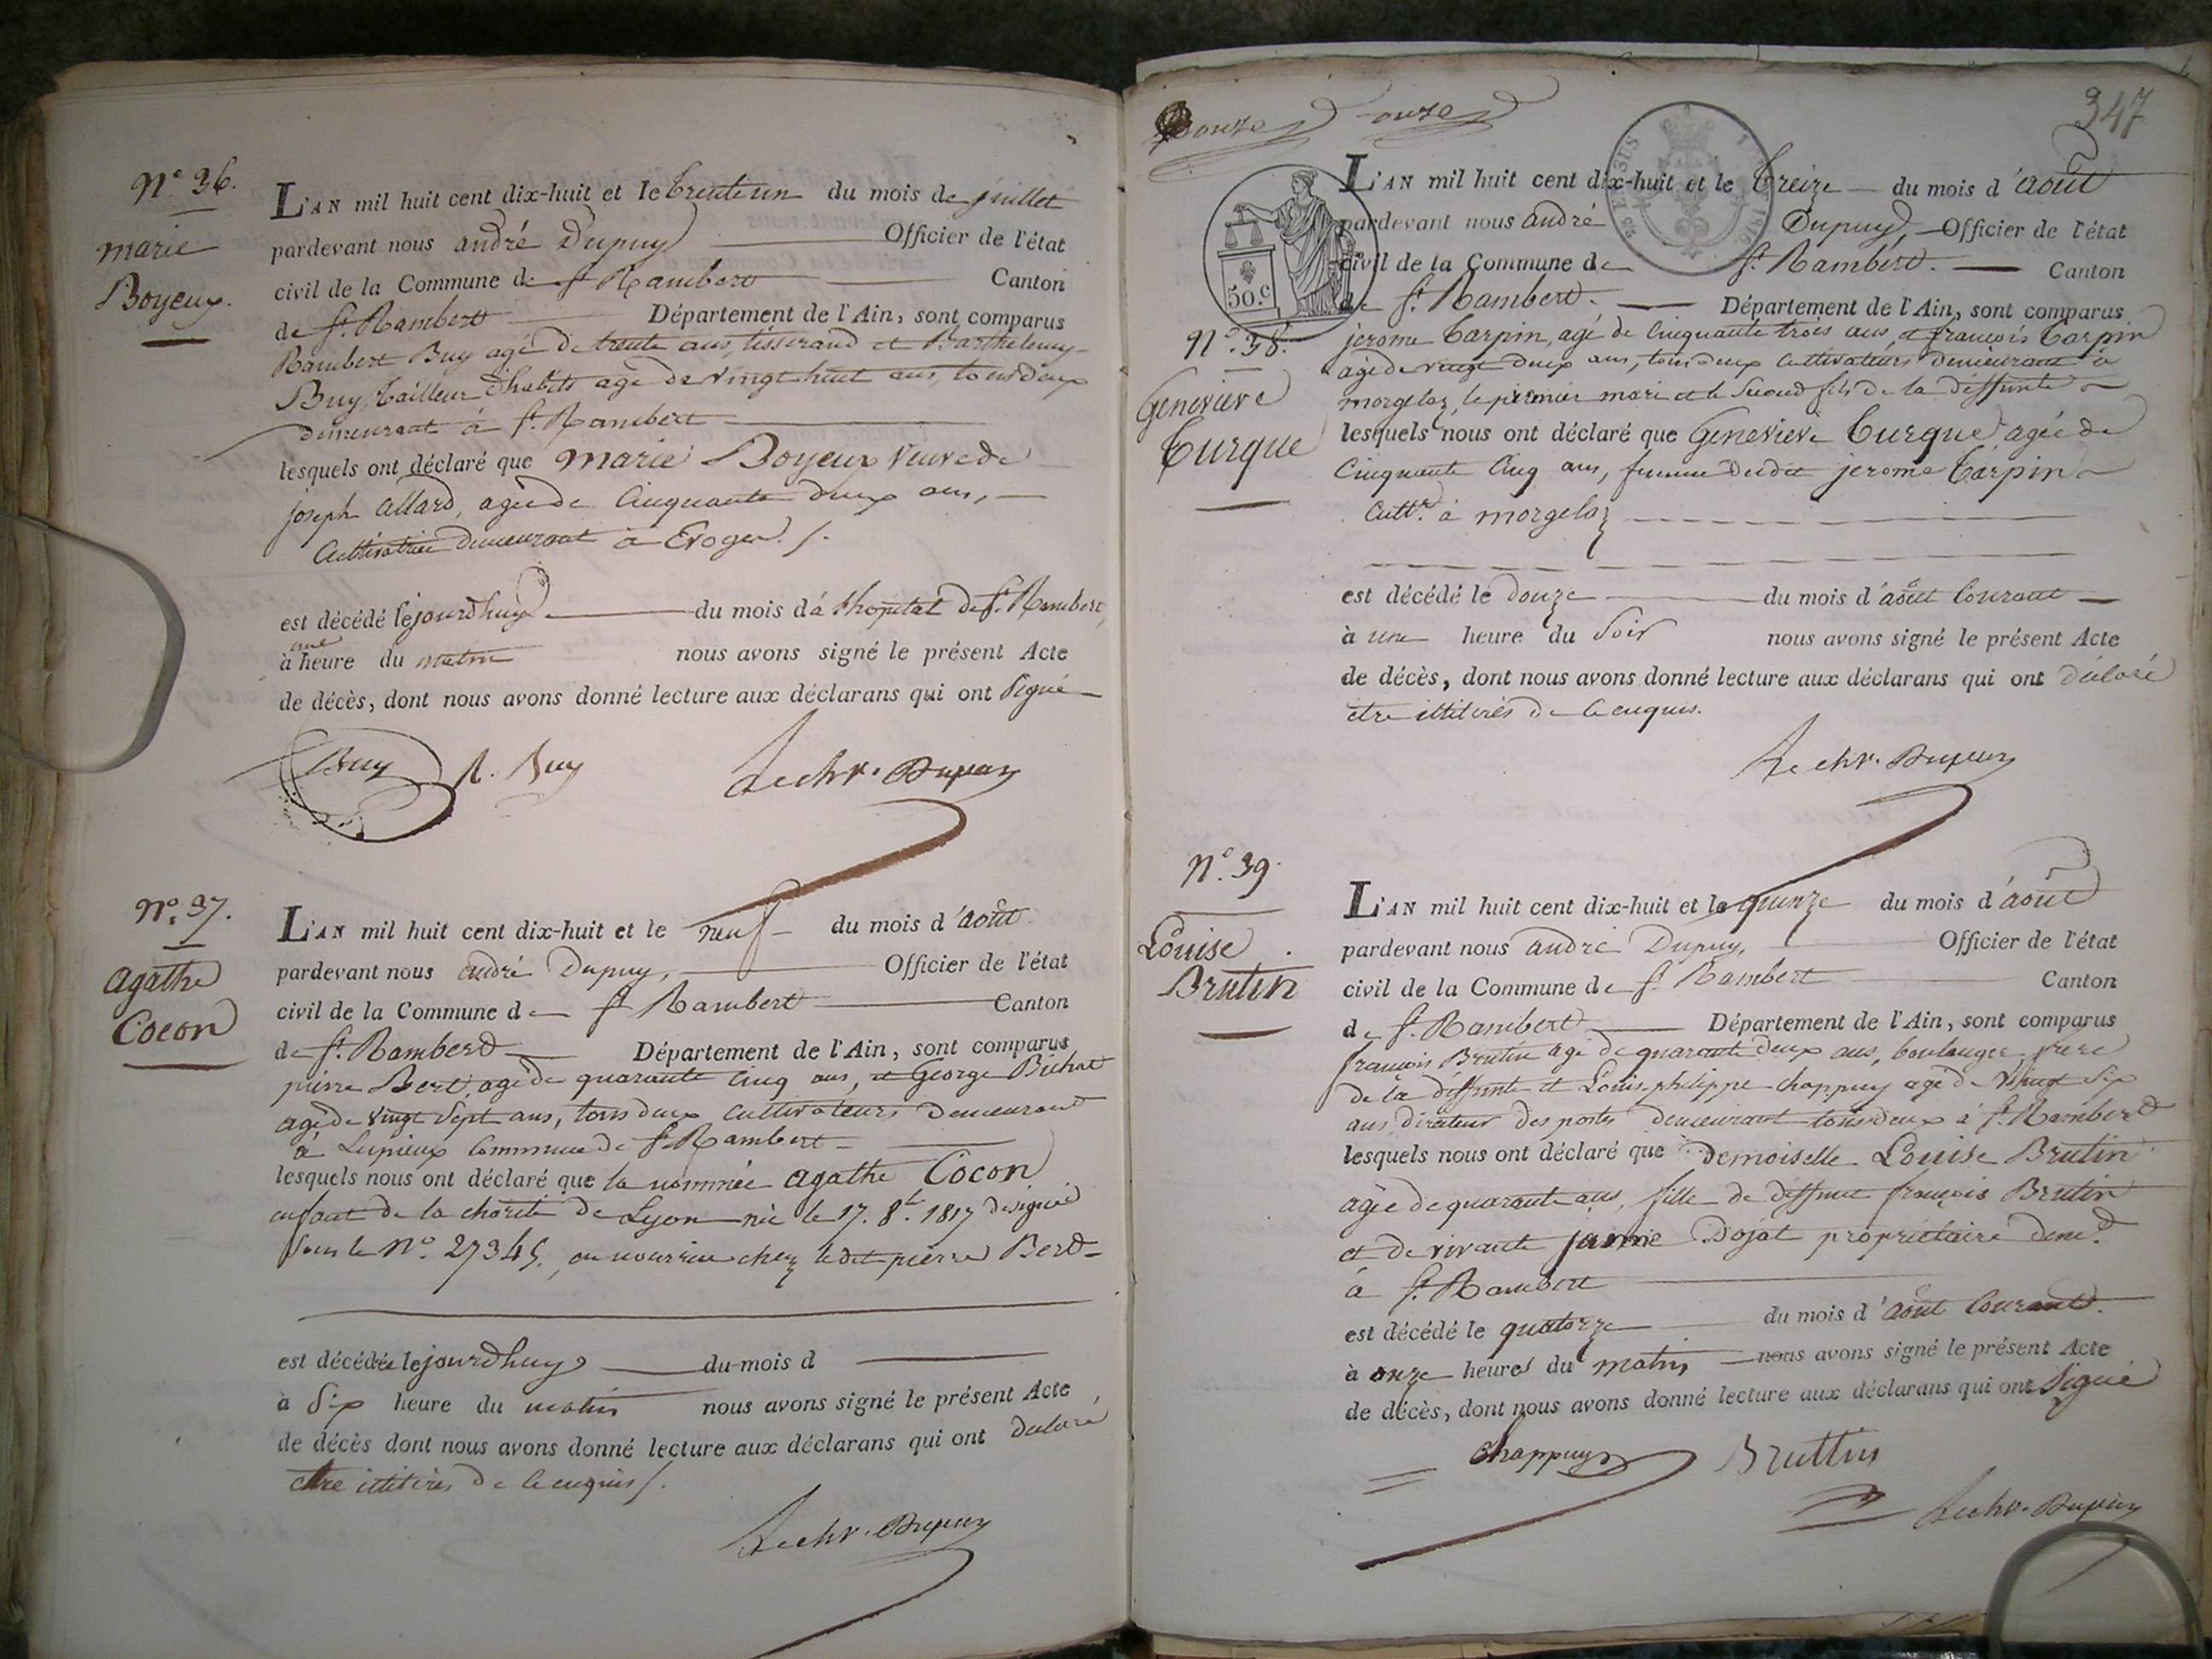 N.º 36.
marie
Boyeux.
L'AN mil huit cent dix-huit et le trente un du mois de juillet
pardevant nous andré Dupuy Officier de l'état
civil de la Commune de St Rambert Canton
de St. Rambert Département de l'Ain, sont comparus
Rambert Buy agé de trente ans, tisserand et Barthelemy
Buy, tailleur d'habits agé de vingt huit ans, tous deux
demeurant à St. Rambert
lesquels ont déclaré que marie Boyeux veuve de
joseph allard, agée de Cinquante deux ans,
Cultivatrice demeurant à Evoges /.
est décédé le jourdhuy du mois d à lhopital de St. Rambert,
à une heure du matin nous avons signé le présent Acte
de décès, dont nous avons donné lecture aux déclarans qui ont signé
Buy R. Buy Le chr. Dupuy
N.º 37.
agathe
Cocon
L'AN mil huit cent dix-huit et le neuf du mois d'août
pardevant nous andré Dupuy, Officier de l'état
civil de la Commune de St Rambert Canton
de St. Rambert Département de l'Ain, sont comparus
pierre Berd, agé de quarante cinq ans, et George Bichat
agé de vingt sept ans, tous deux cultivateurs demeurant
à Lupieux Commune de St Rambert
lesquels nous ont déclaré que la nommée agathe Cocon
enfant de la charité de Lyon née le 17. 8.bre 1817 designée
sous le N.º 27345., en nourrice chez ledit pierre Berd
est décédée le jourdhuy du mois d
à six heure du matin nous avons signé le présent Acte
de décès dont nous avons donné lecture aux déclarans qui ont declaré
etre illitérés de ce enquis /.
Le chr. Dupuy
347
Douze onze
50.c
N.º 38.
Genevieve
Turque
L'AN mil huit cent dix-huit et le treize du mois d'août
pardevant nous andré Dupuy, Officier de l'état
civil de la Commune de St. Rambert. Canton
de St. Rambert. Département de l'Ain, sont comparus
jerome Carpin, agé de Cinquante trois ans, et françois Carpin
agé de vingt deux ans, tous deux cultivateurs demeurant à
morgelaz, le premier mari et le second fils de la deffunte
lesquels nous ont déclaré que Genevieve Turque agée de
Cinquante Cinq ans, femme dudit jerome Carpin
cultr. à morgelaz
est décédé le douze du mois d'août Courant
à une heure du soir nous avons signé le présent Acte
de décès, dont nous avons donné lecture aux déclarans qui ont déclaré
etre illitérés de ce enquis.
Le chr. Dupuy
N.º 39.
Louise
Brutin
L'AN mil huit cent dix-huit et le quinze du mois d'août
pardevant nous andré Dupuy, Officier de l'état
civil de la Commune de St. Rambert Canton
de St. Rambert Département de l'Ain, sont comparus
françois Brutin agé de quarante deux ans, boulanger frere
de la deffunte et Louis philippe chappuy agé de vingt six
ans directeur des postes demeurant tous deux à St. Rambert
lesquels nous ont déclaré que demoiselle Louise Brutin
agée de quarante ans, fille de deffunt françois Brutin
et de vivante jeanne Dojat propriétaire demt.
à St. Rambert
est décédé le quatorze du mois d'août Courant.
à onze heures du matin nous avons signé le présent Acte
de décès, dont nous avons donné lecture aux déclarans qui ont signé
Chappuy Bruttin
Le chr. Dupuy